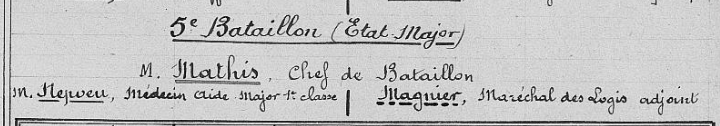 5e Bataillon (État Major)
M. Mathis, Chef de Bataillon
M. Nepveu, Médecin aide Major 1e classe | Magnier, Maréchal des Logis adjoint